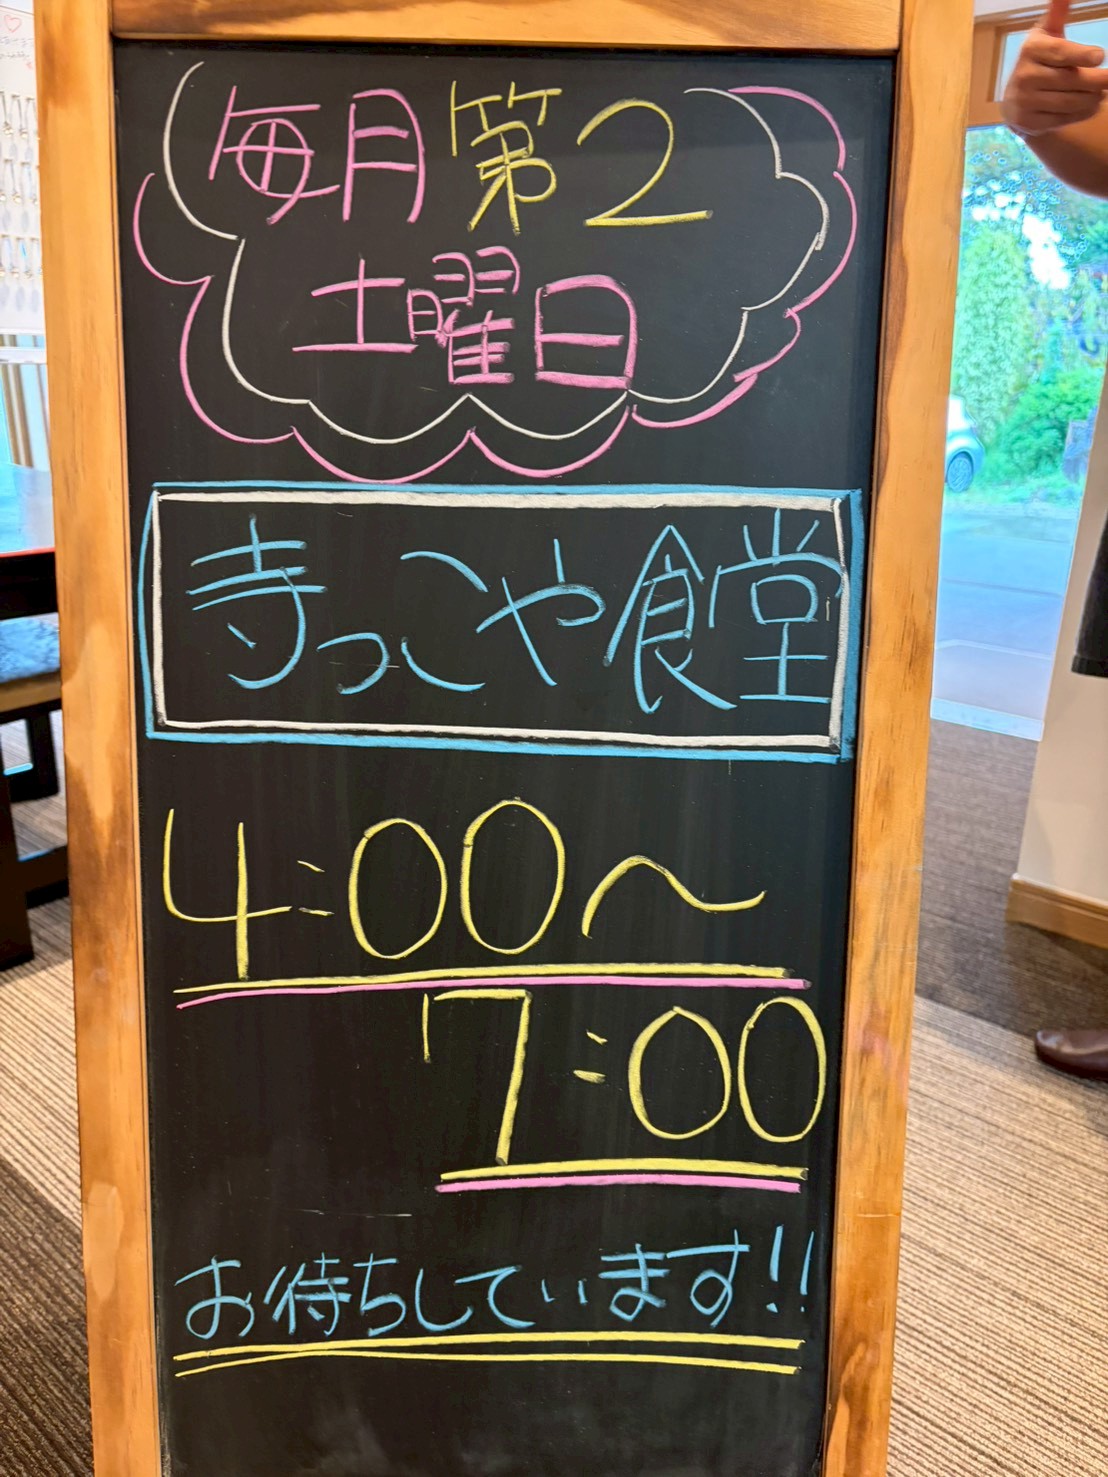 毎月第2
土曜日
寺っこや食堂
4:00〜
7:00
お待ちしています!!